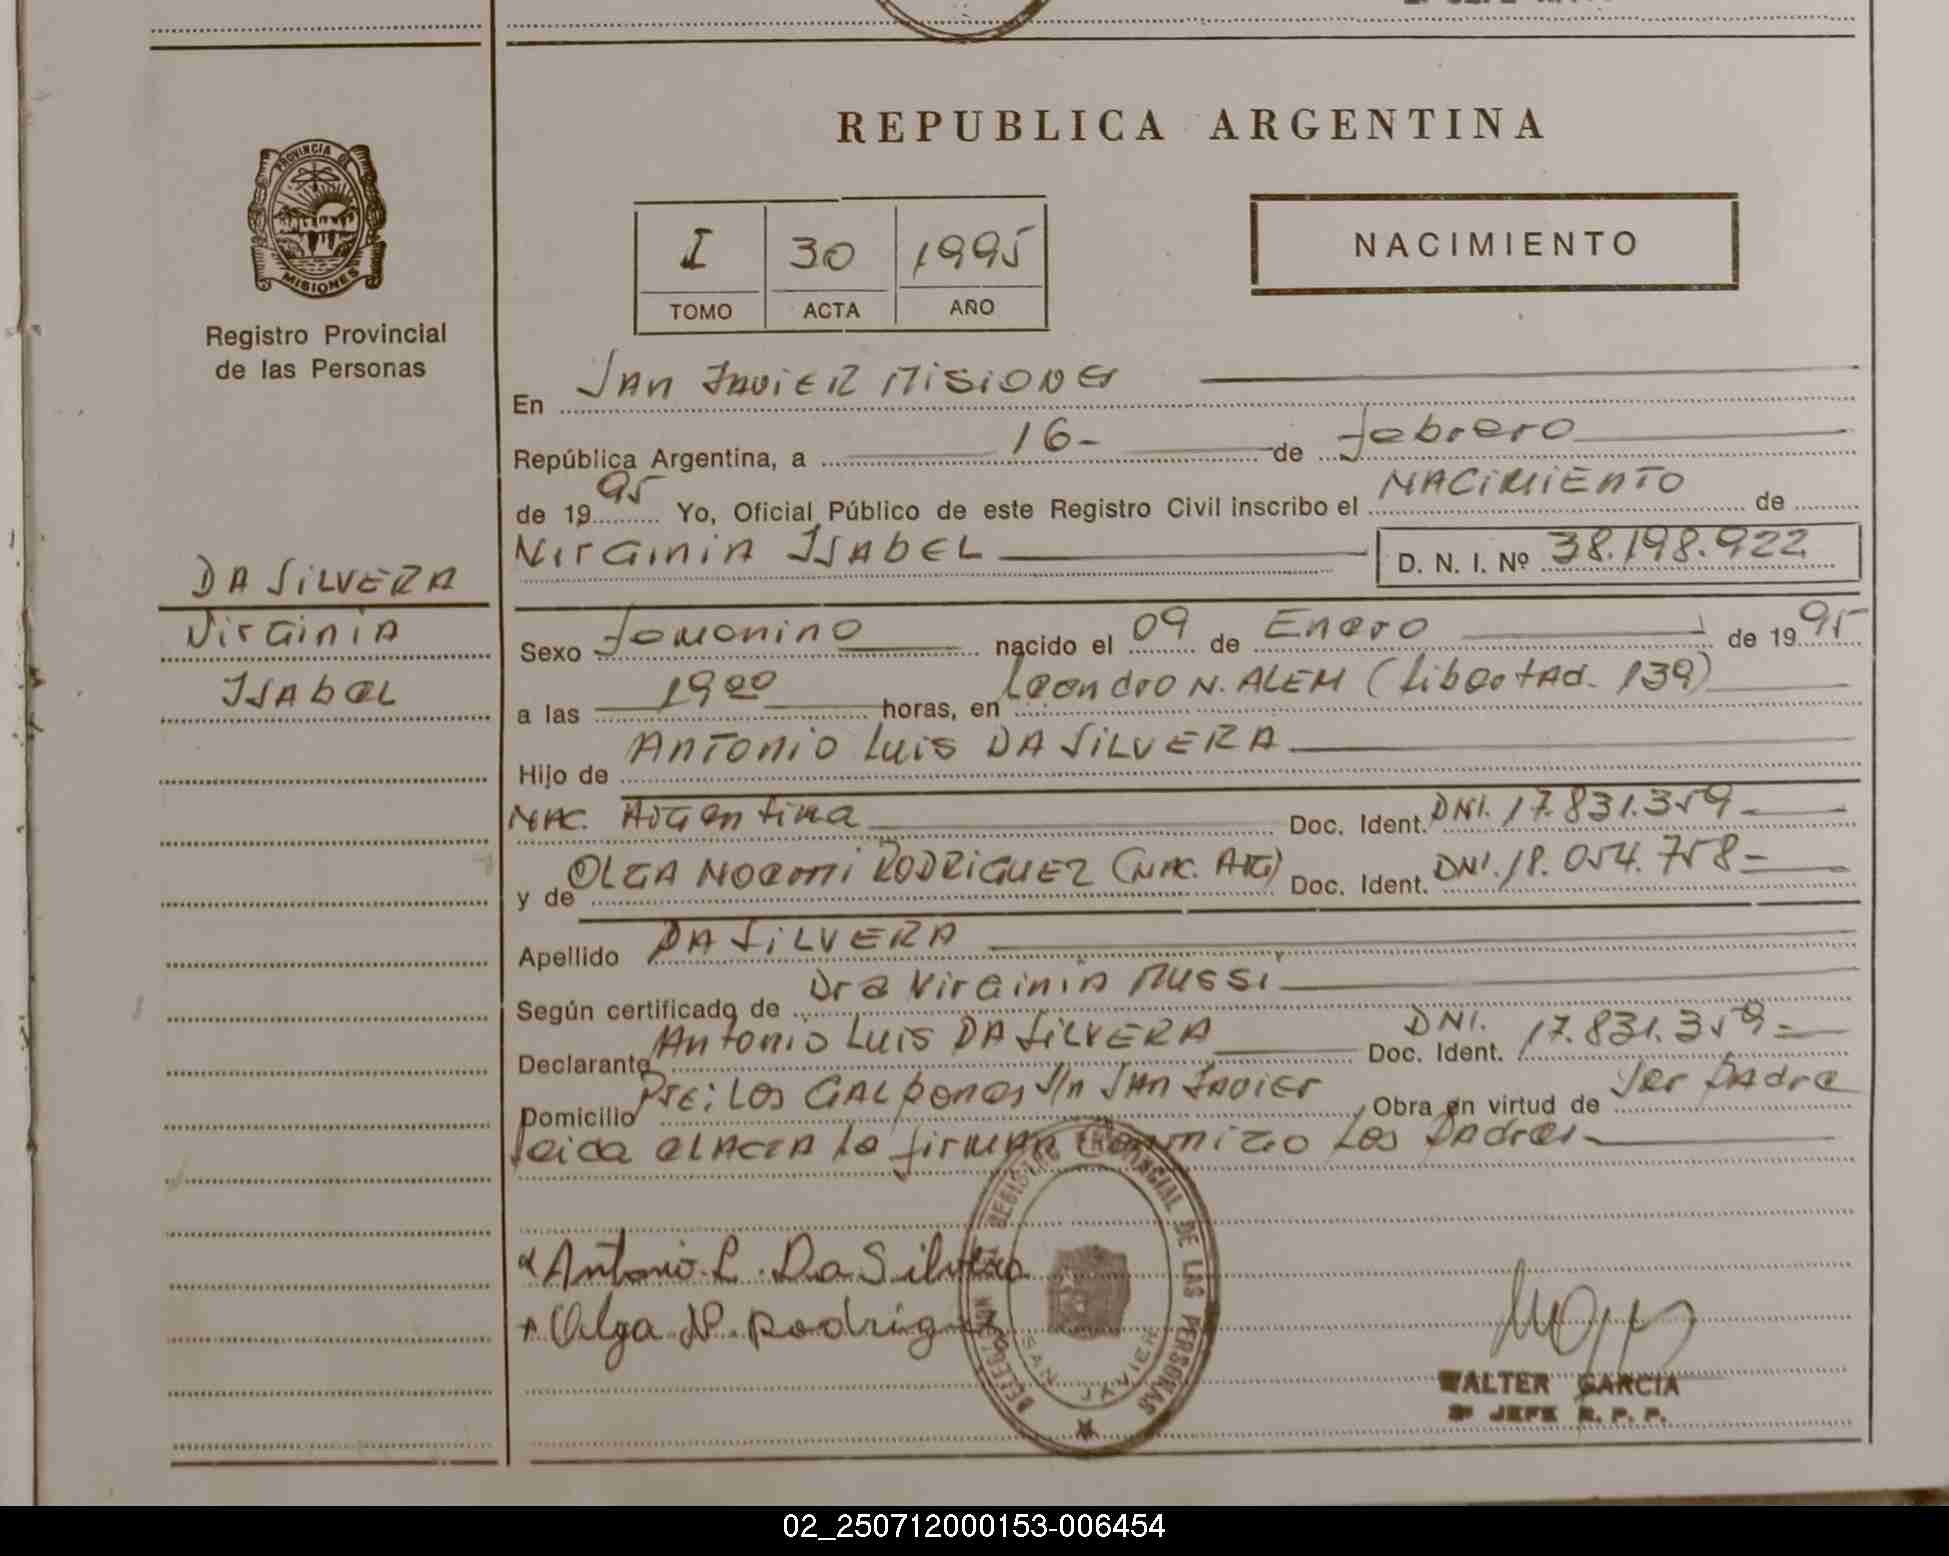 REPUBLICA ARGENTINA
PROVINCIA DE
MISIONES
Registro Provincial
de las Personas
I 30 1995
TOMO ACTA AÑO
NACIMIENTO
En SAN JAVIER MISIONES
República Argentina, a 16- de febrero
de 1995 Yo, Oficial Público de este Registro Civil inscribo el NACIMIENTO de
VIRGINIA ISABEL D. N. I. Nº 38.198.922
DA SILVERA
Virginia
ISAbel
Sexo femenino nacido el 09 de Enero de 1995
a las 19 00 horas, en Leandro N. ALEM (Libertad. 139)
Hijo de ANTONIO LUIS DA SILVERA
NAC. Argentina Doc. Ident. DNI. 17.831.359-
y de OLGA NOEMI RODRIGUEZ (NAC. ARG) Doc. Ident. DNI. 18.054.758=
Apellido DA SILVERA
Según certificado de Dra Virginia Mussi
Declarante Antonio Luis DA SILVERA DNI. Doc. Ident. 17.831.359=
Domicilio Los GALpones S/n SAN JAVIER Obra en virtud de Ser PAdre
leida el ACTA la firman Conmigo Los PAdres-
Antonio L. Da Silvera
Olga N. Rodriguez
REGISTRO PROVINCIAL DE LAS PERSONAS
DELEGACION
SAN JAVIER
WALTER GARCIA
JEFE R. P. P.
02_250712000153-006454